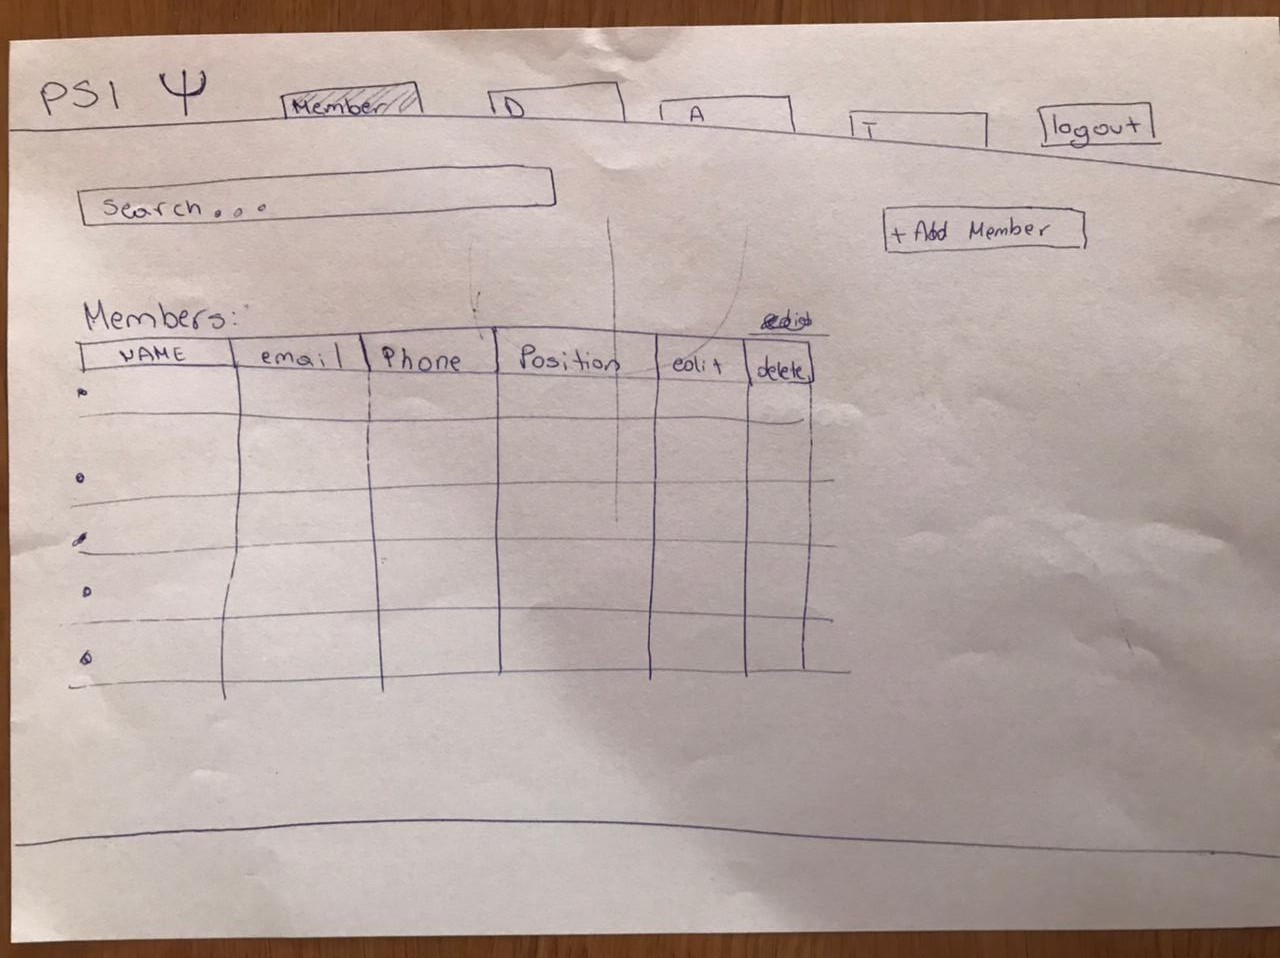 PSI Ψ Member D A T logout
Search...
+ Add Member
Members:
NAME email Phone Position edit delete